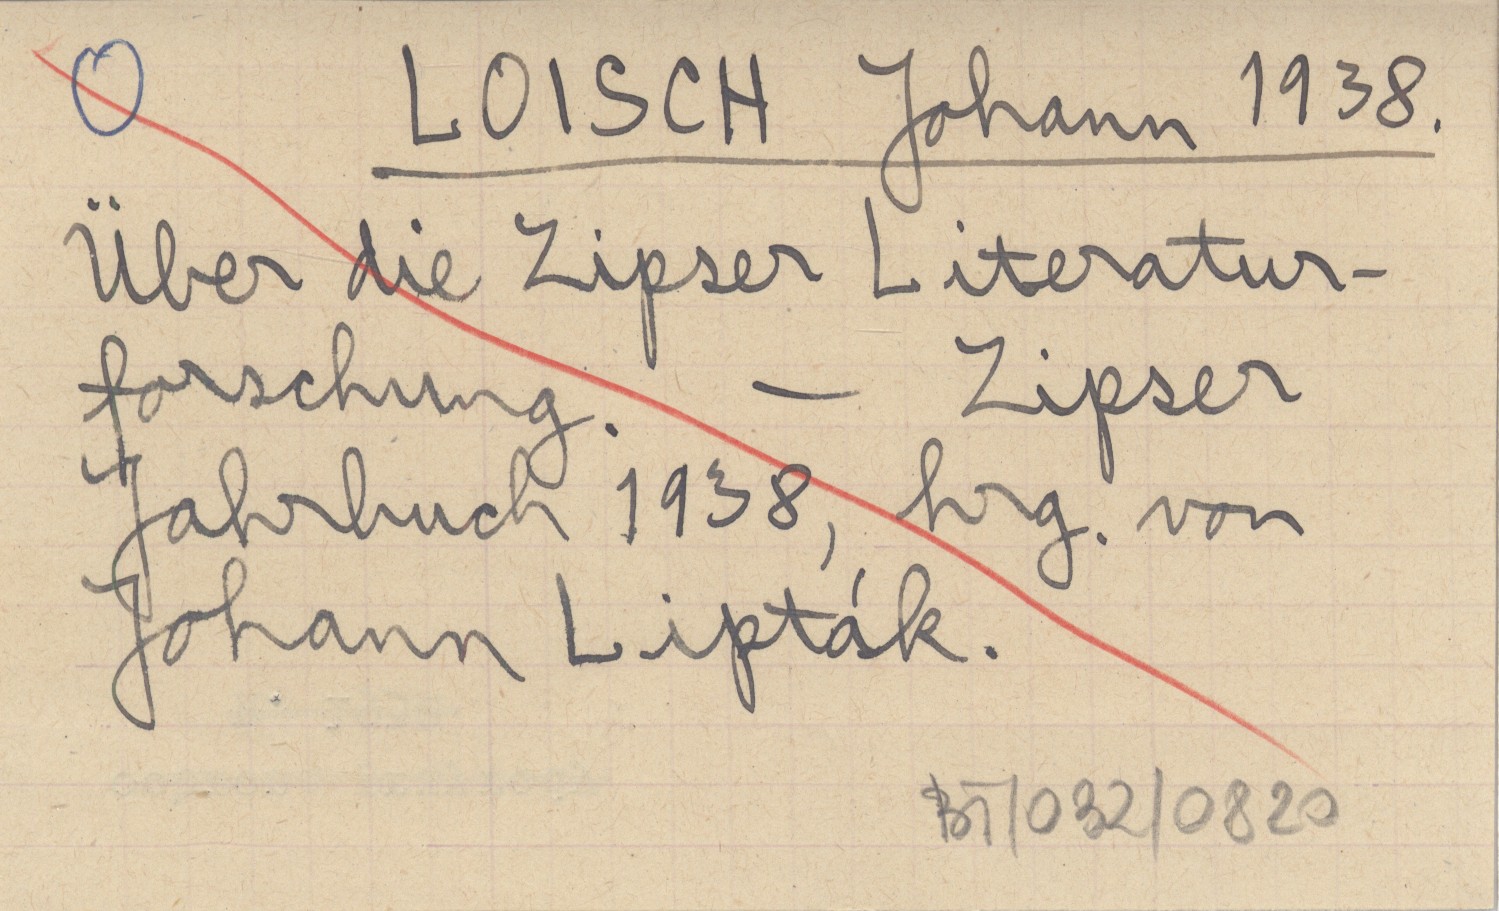 O LOISCH Johann 1938.
Über die Zipser Literatur-
forschung. — Zipser
Jahrbuch 1938, hrg. von
Johann Lipták.
BT/032/0820